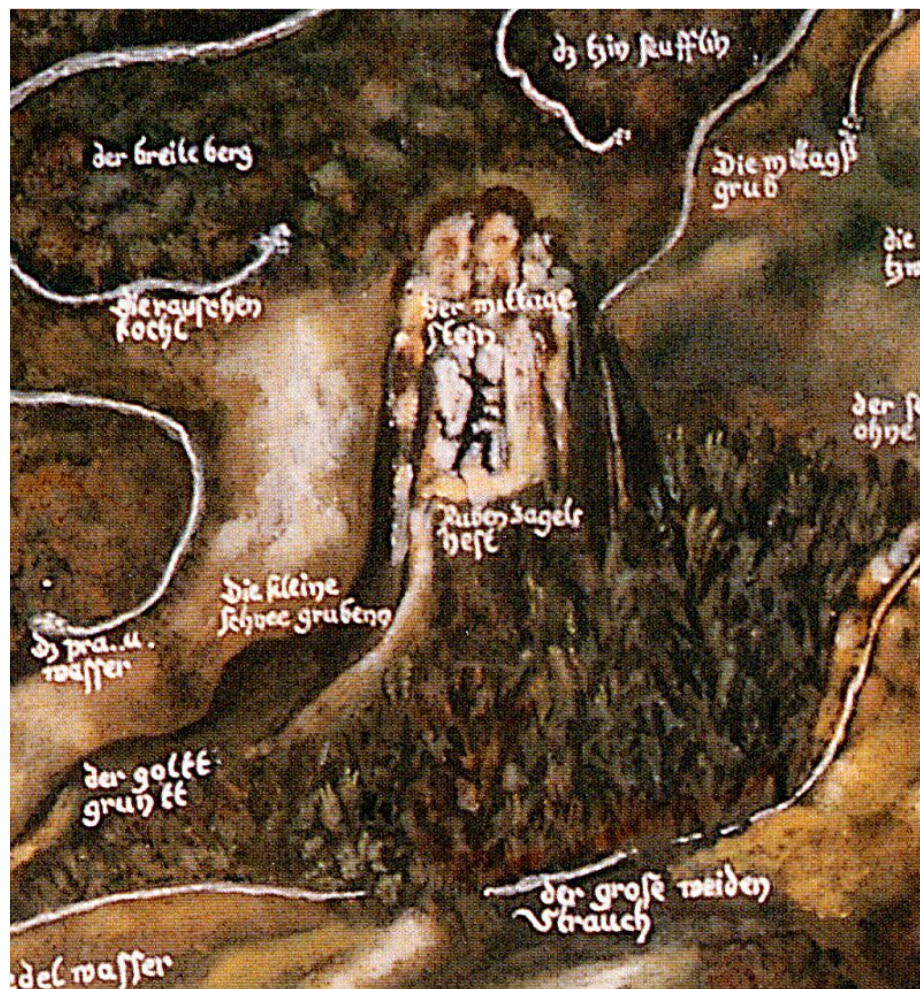 dz tzin seufflin
der breite berg
Die mittagß
grub
die
die rauschen
kocht
der mittage
stein
der
ohne
Ruben Zagels
nest
Die kleine
schnee gruben
dz pra..u.
wasser
der goltt
gruntt
der große weiden
Strauch
del wasser